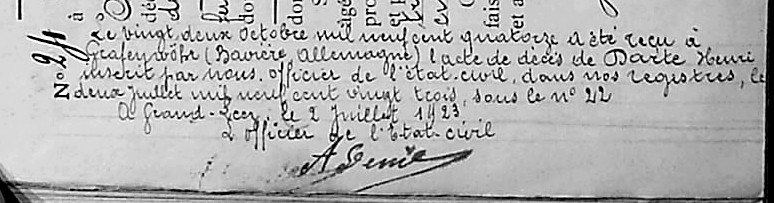 Le vingt deux Octobre mil neuf cent quatorze a été reçu à
Grafenwöhr (Bavière Allemagne) l'acte de décès de Darte Henri
inscrit par nous, officier de l'état-civil, dans nos registres, le
deux juillet mil neuf cent vingt trois, sous le n° 22
A Grand-Leez, le 2 Juillet 1923
L'officier de l'Etat-civil
N° 24